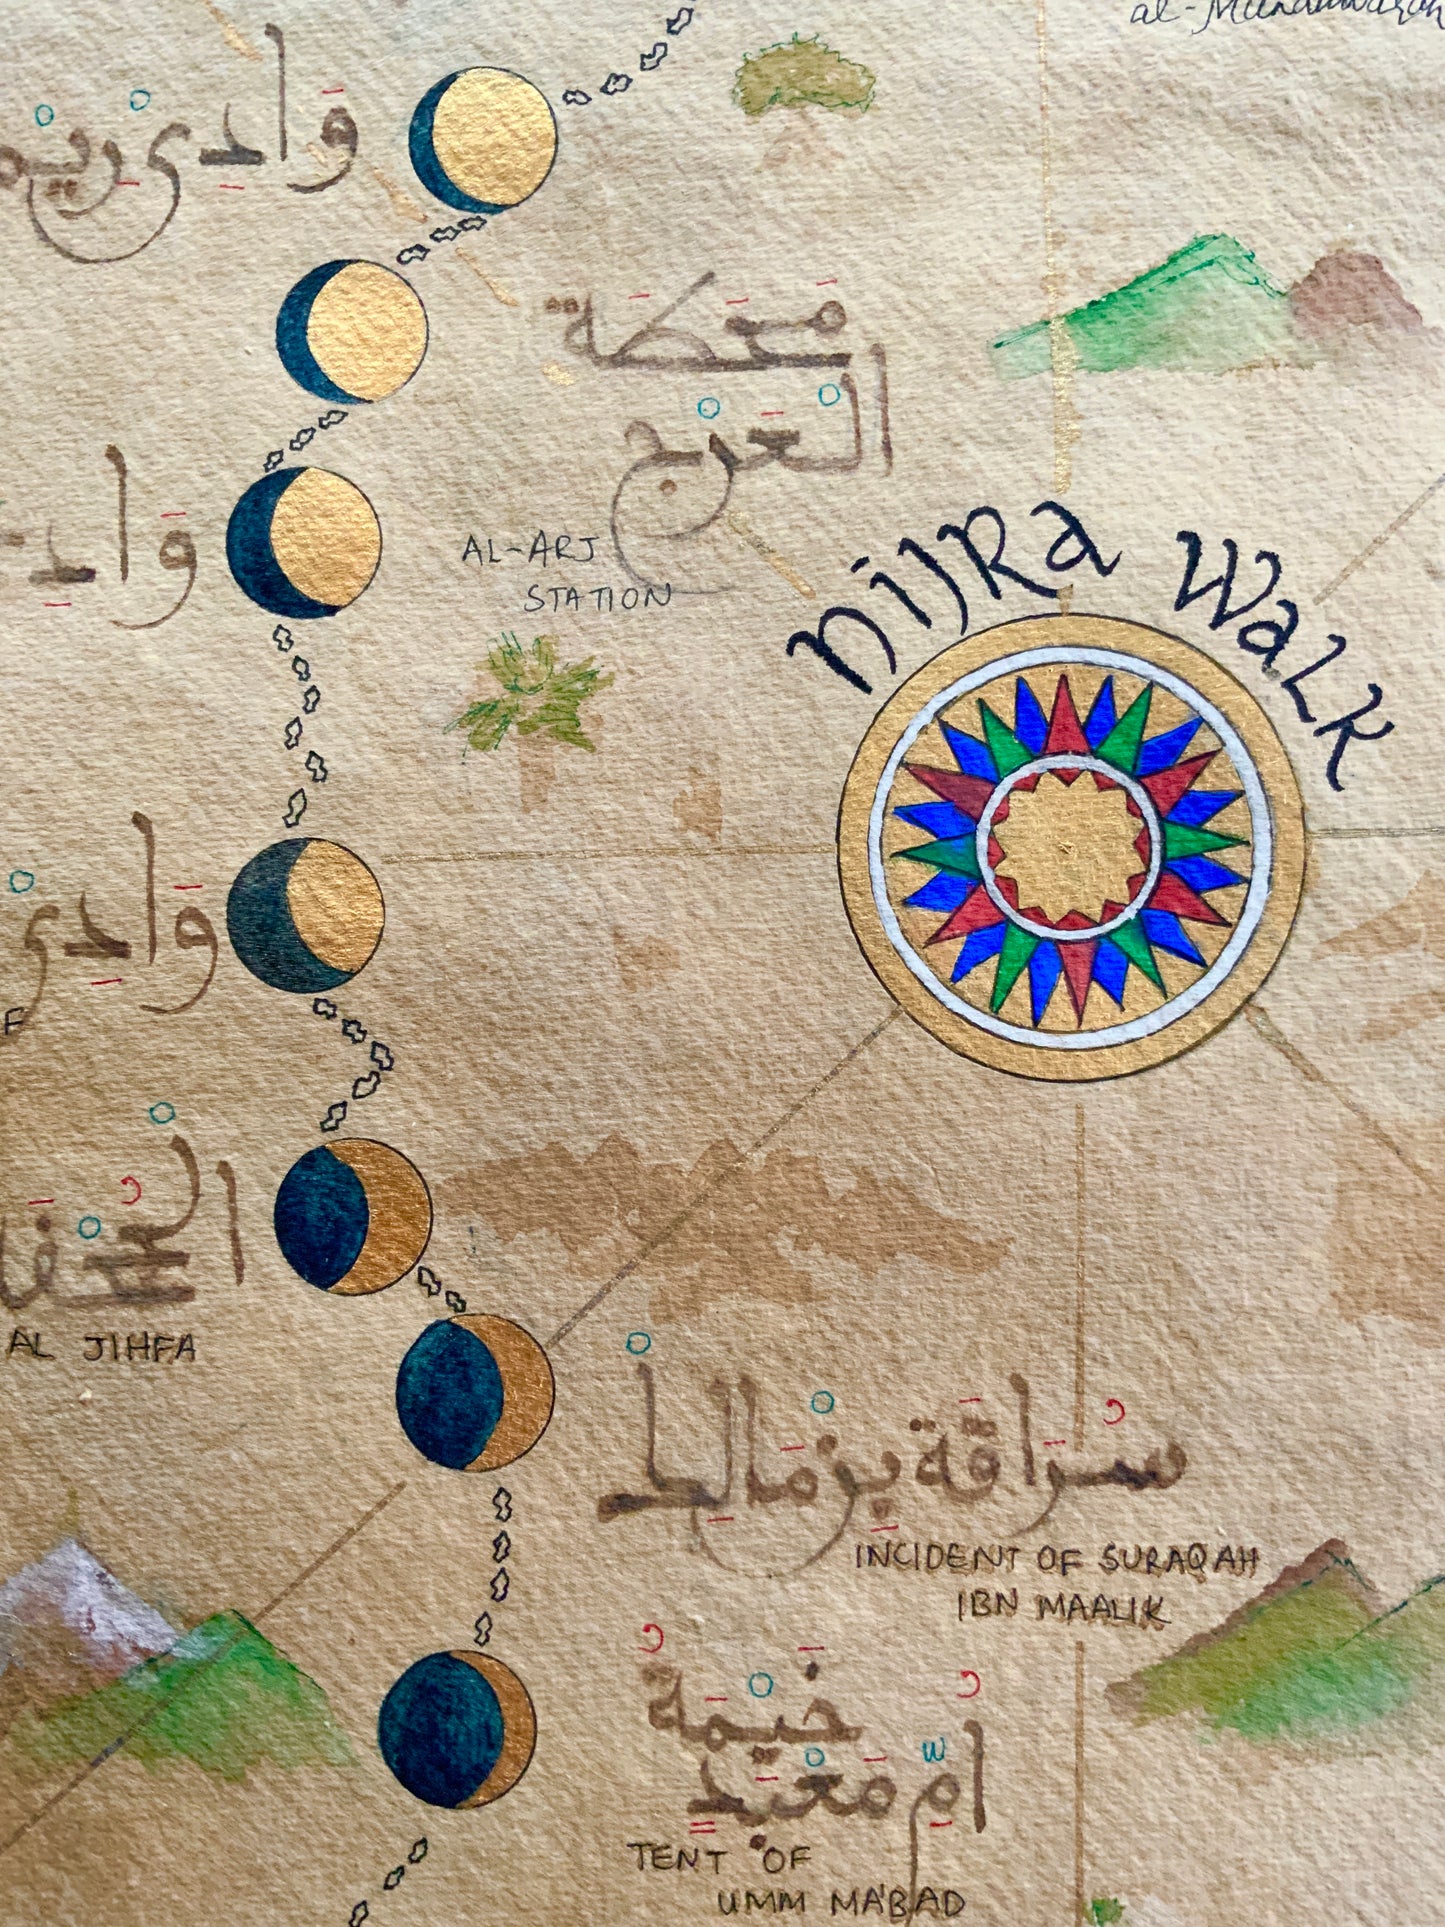 al-Munawwarah
وَادِيْ رِيْم
مَحَطَّةُ
الْعَرْج
AL-ARJ
STATION
HIJRA WALK
وَادِ
وَادِيْ
F
AL JIHFA
سُرَاقَة بِنْ مَالِك
INCIDENT OF SURAQAH
IBN MAALIK
خَيْمَةُ
أُمِّ مَعْبَدٍ
TENT OF
UMM MA'BAD